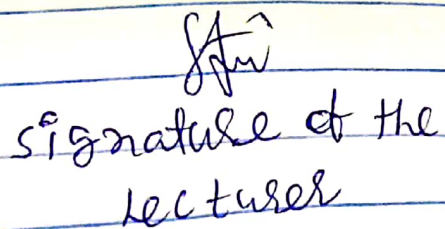 signature of the
Lecturer